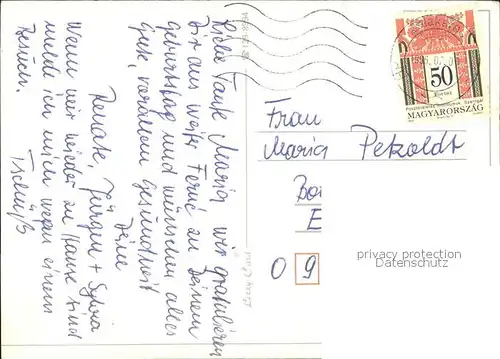 Liebe Tante Maria, wir gratulieren
Dir aus weiter Ferne zu Deinem
Geburtstag und wünschen alles
Gute, vor allem Gesundheit
Deine
Renate, Jürgen + Sylvia
Wenn wir wieder zu Hause sind
melde ich mich wegen einem
Besuch.
Tschüß
50
Forint
MAGYARORSZÁG
Frau
Maria Petzoldt
Ba
E
0 9
privacy protection
Datenschutz